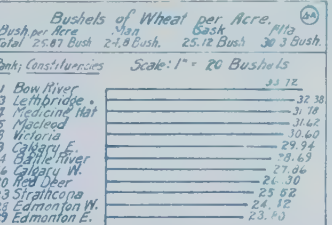 Bushels of Wheat per Acre.
Bush. per Acre Man Sask Alta
Total 25.87 Bush 24.8 Bush. 25.12 Bush 30.3 Bush.
Rank; Constituencies Scale: 1" = 20 Bushels
Bow River 33.72
Lethbridge 32.38
Medicine Hat 31.78
Macleod 31.62
Victoria 30.60
Calgary E. 29.94
Battle River 28.69
Calgary W. 27.86
Red Deer 26.30
Strathcona 25.62
Edmonton W. 24.12
Edmonton E. 23.80